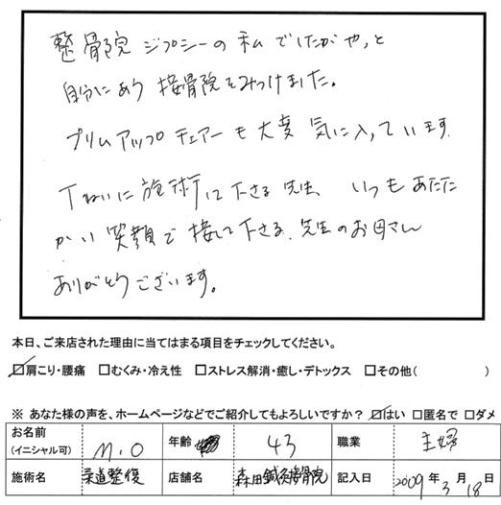 整骨院ジプシーの私でしたがやっと
自分にあう接骨院をみつけました。
プリムアップチェアーも大変気に入っています。
丁ねいに施術して下さる先生、いつもあたた
かい笑顔で接して下さる、先生のお母さん
ありがとうございます。
本日、ご来店された理由に当てはまる項目をチェックしてください。
☑肩こり・腰痛 □むくみ・冷え性 □ストレス解消・癒し・デトックス □その他( )
※ あなた様の声を、ホームページなどでご紹介してもよろしいですか? ☑はい □匿名で □ダメ
お名前
(イニシャル可) M.O 年齢 43 職業 主婦
施術名 柔道整復 店舗名 森田鍼灸接骨院 記入日 2009年3月18日